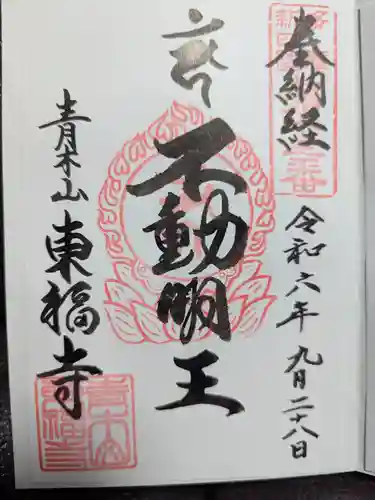 奉納経
令和六年 九月二十八日
不動明王
青木山 東福寺